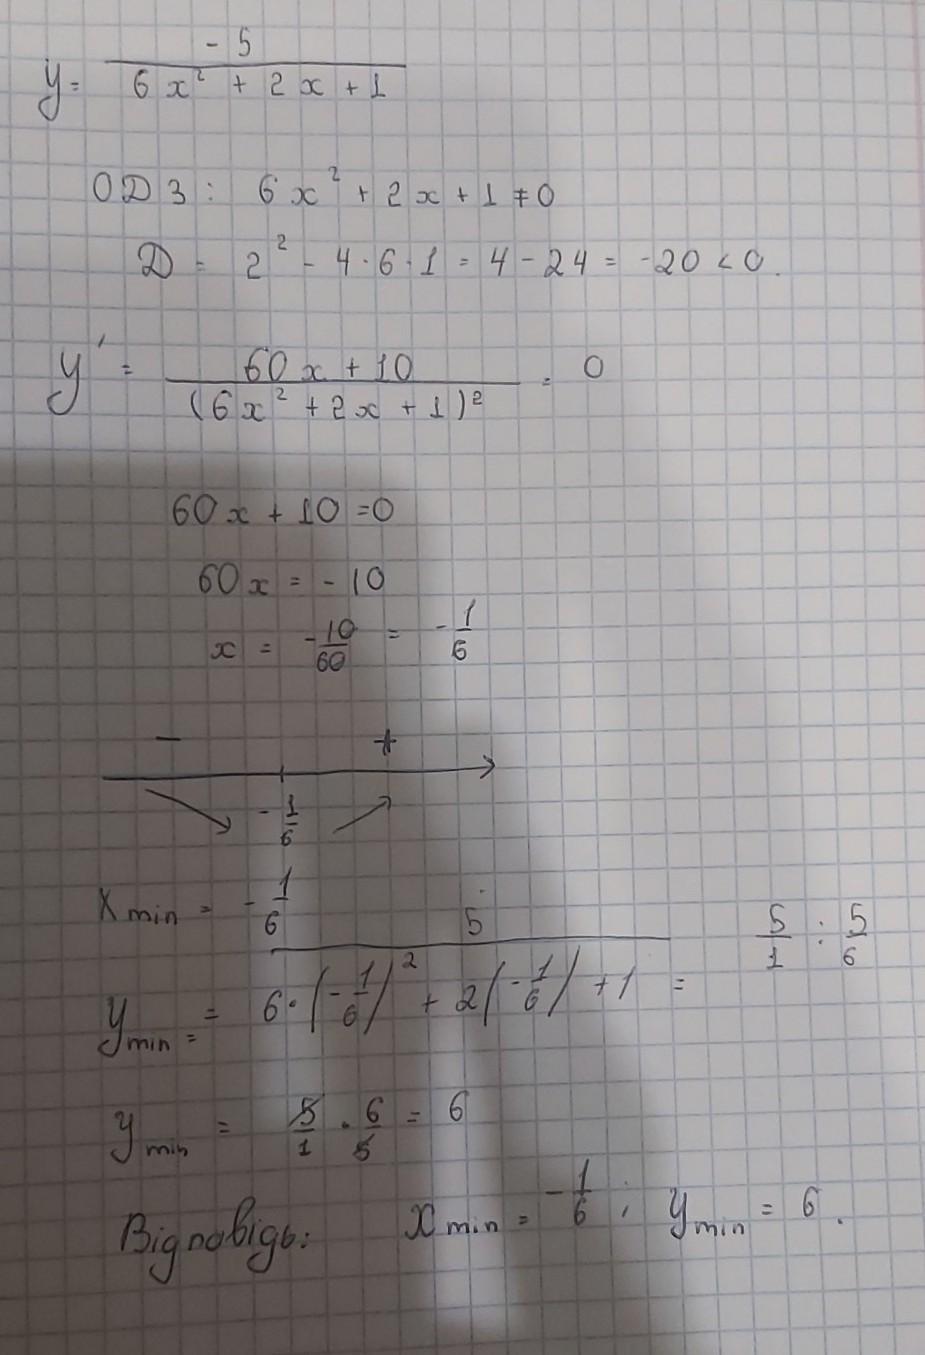 y = -5 / (6x² + 2x + 1)
ОДЗ: 6x² + 2x + 1 ≠ 0
D = 2² - 4·6·1 = 4 - 24 = -20 < 0.
y' = (60x + 10) / (6x² + 2x + 1)² = 0
60x + 10 = 0
60x = -10
x = -10/60 = -1/6
- +
-1/6
x min = -1/6
y min = = 5 / (6·(-1/6)² + 2(-1/6) + 1) = 5/1 : 5/6
y min = 5/1 · 6/5 = 6
Відповідь: x min = -1/6; y min = 6.